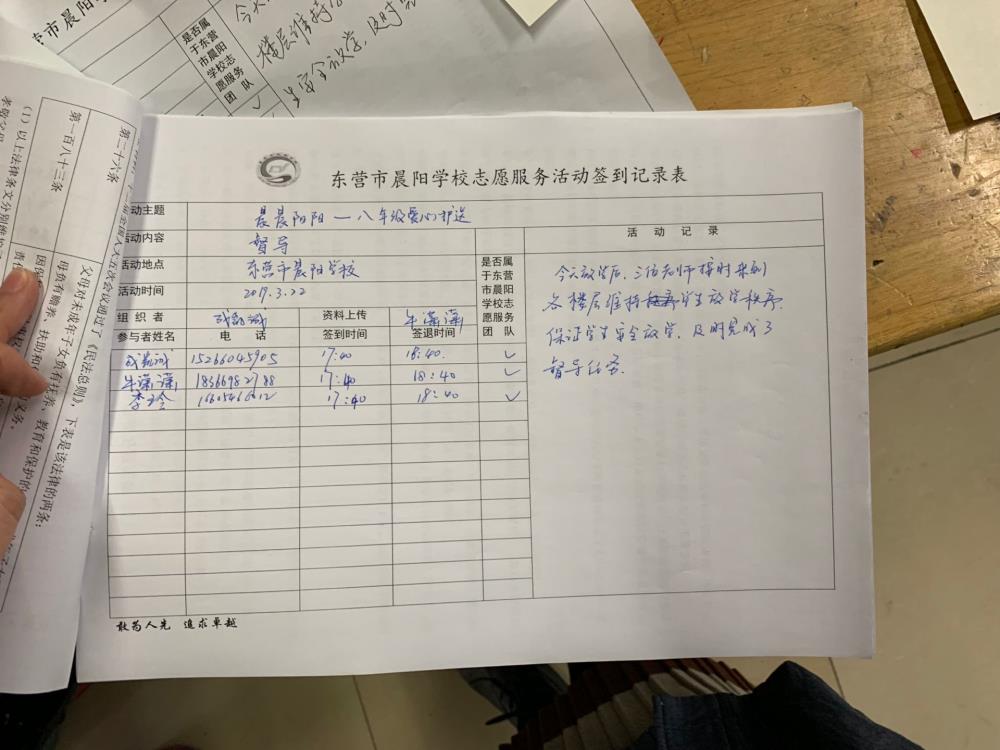 市晨阳
是否属
于东营
市晨阳
学校志
愿服务
团 队
楼层维持
生安全放学,及时
第二十六条
第一百八十三条
父母对未成年子女负有抚养、教育和保护的
母负有赡养、扶助和
(1)以上法律条文分别维
通过了《民法总则》,下表是该法律的两条:
东营市晨阳学校志愿服务活动签到记录表
动主题 晨晨阳阳一八年级爱心护送
动内容 督导
活动地点 东营市晨阳学校
活动时间 2019.3.22
组织者 资料上传 牛潇潇
参与者姓名 电 话 签到时间 签退时间
是否属
于东营
市晨阳
学校志
愿服务
团 队
15266045905 17:40 18:40. ✓
牛潇潇 18366982788 17:40 18:40 ✓
李玲 17:40 18:40 ✓
活 动 记 录
今天放学后,三位老师按时来到
各楼层维持学生放学秩序
保证学生安全放学,及时完成了
督导任务
敢为人先 追求卓越